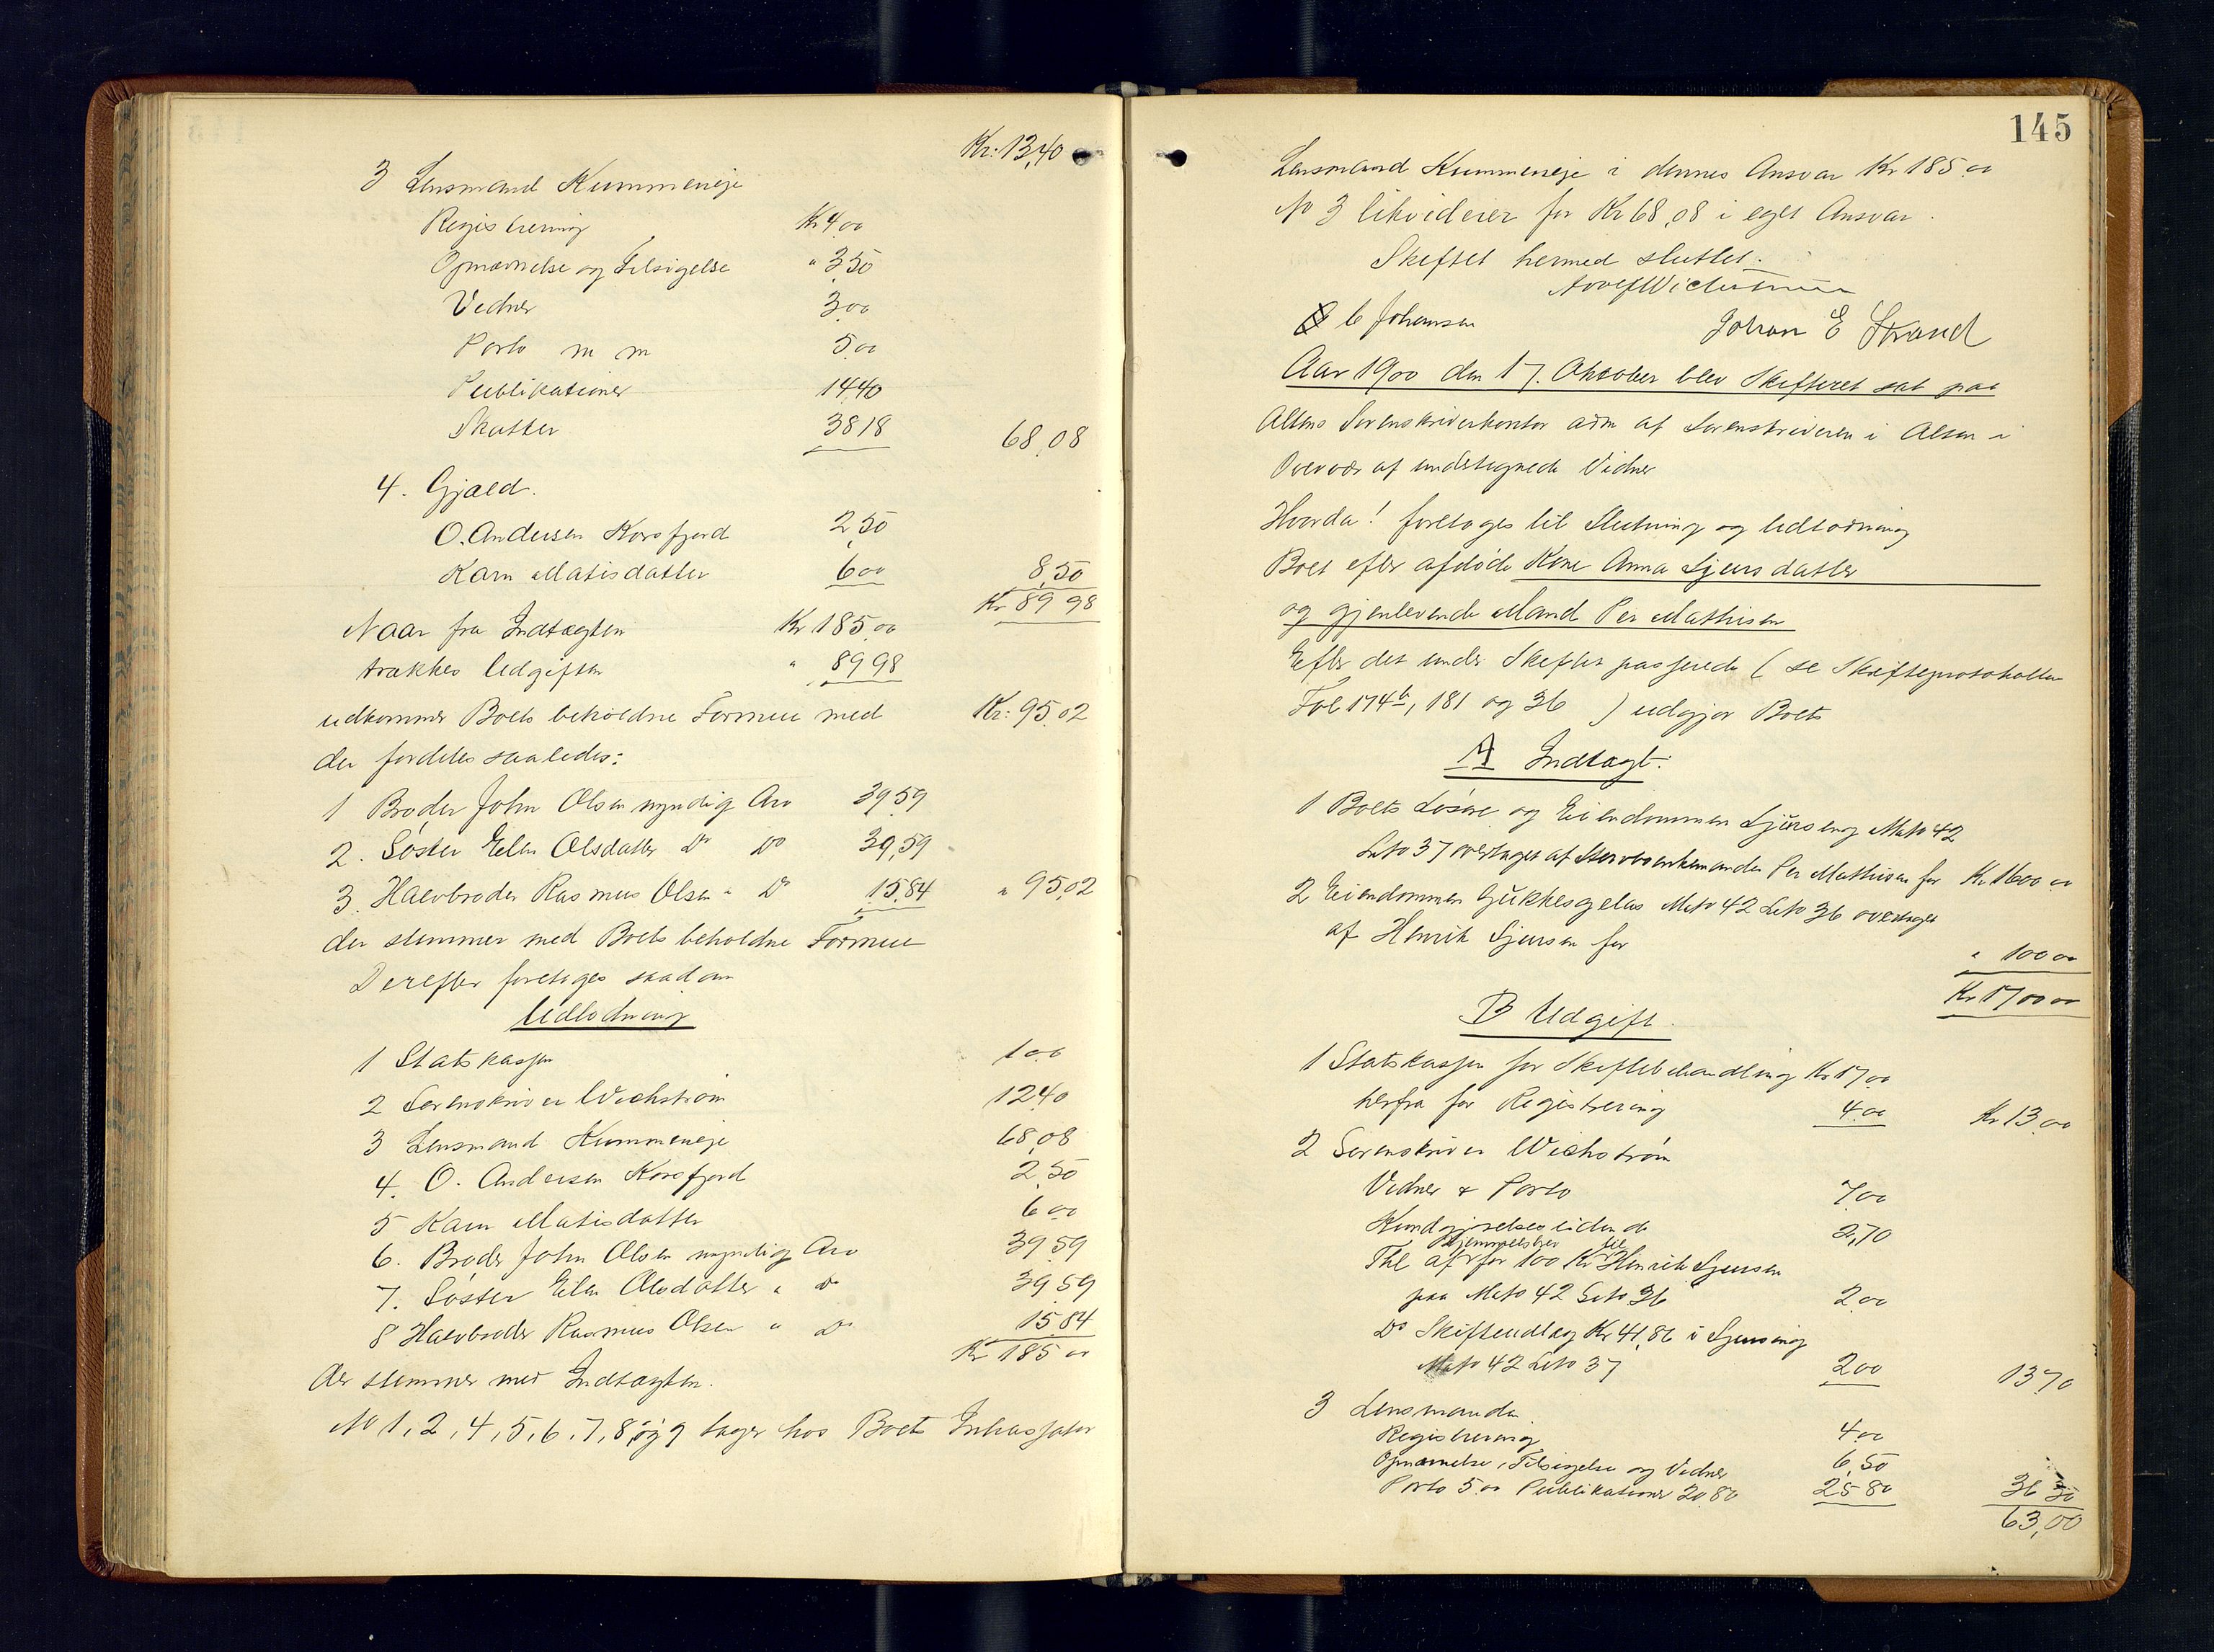 Kr: 13,40
3 Lensmand Kummeneje
Registrering Kr 4 00
Opnævnelse og Tilsigelse " 3 50
Vidner 3 00
Porto m m 5 00
Publikationer 14,40
Skatter 38 18 68,08
4. Gjæld.
O. Andersen Korsfjord 2,50
Karn Matisdatter 6 00 8,50
Kr 89 98
Naar fra Indtægten Kr 185,00
trækkes Udgiften " 89 98
udkommer Boets beholdne Formue med Kr: 95,02
der fordeles saaledes:
1 Broder John Olsen myndig Arv 39,59
2. Søster Elen Olsdatter Do Do 39,59
3. Halvbroder Rasmus Olsen " Do 15,84 " 95,02
der stemmer med Boets beholdne Formue
Derefter foretages saadan
Udlodning
1 Statskassen 1 00
2 Sorenskriver Wichstrøm 12 40
3 Lensmand Kummeneje 68,08
4. O. Andersen Korsfjord 2,50
5 Karn Matisdatter 6 00
6. Broder John Olsen myndig Arv 39,59
7. Søster Elen Olsdatter " Do 39,59
8 Halvbroder Rasmus Olsen " Do 15,84
Kr 185 00
der stemmer med Indtægten.
No 1, 2, 4, 5, 6, 7, 8, og 9 tages hos Boets Inkassator
145
Lensmand Kummeneje i dennes Ansvar Kr 185 00
No 3 likviderer for Kr 68,08 i eget Ansvar.
Skiftet hermed sluttet.
C Johansen Johan E Strand
Aar 1900 den 17. Oktober blev Skifteret sat paa
Altens Sorenskriverkontor adm af Sorenskriveren i Alten i
Overvær af undertegnede Vidner
Hvorda! foretoges til Slutning og Udlodning
Boet efter afdøde Kone Anna Sjursdatter
og gjenlevende Mand Per Mathisen
Efter det under Skiftet passerede ( se Skifteprotokollen
Fol 174b, 181 og 36 ) udgjør Boets
A Indtægt:
1 Boets Løsøre og Eiendommen Sjurseng Mato 42
Leto 37 overtaget af Stervboenkemanden Per Mathisen for Kr. 1600 00
2 Eiendommen Gukkesgelas Mato 42 Leto 36 overtaget
af Henrik Sjursen for " 100 00
Kr 1700 00
B Udgift.
1 Statskassen for Skiftebehandling Kr 17 00
herfra for Registrering 4 00 Kr 13,00
2 Sorenskriver Wichstrøm
Vidner & Porto 7,00
Kundgjørelsestidende 2,70
Hjemmelsbrev til
Thl af for 100 Kr Henrik Sjursen
paa Mato 42 Leto 36 2 00
Do Skifteudlæg Kr 41,86 i Sjurseng
Mato 42 Leto 37 2 00 13 70
3 Lensmanden
Registrering 4 00
Opnævnelse, Tilsigelse og Vidner 6,50
Porto 5 00 Publikationer 20 80 25 80 36 30
63,00